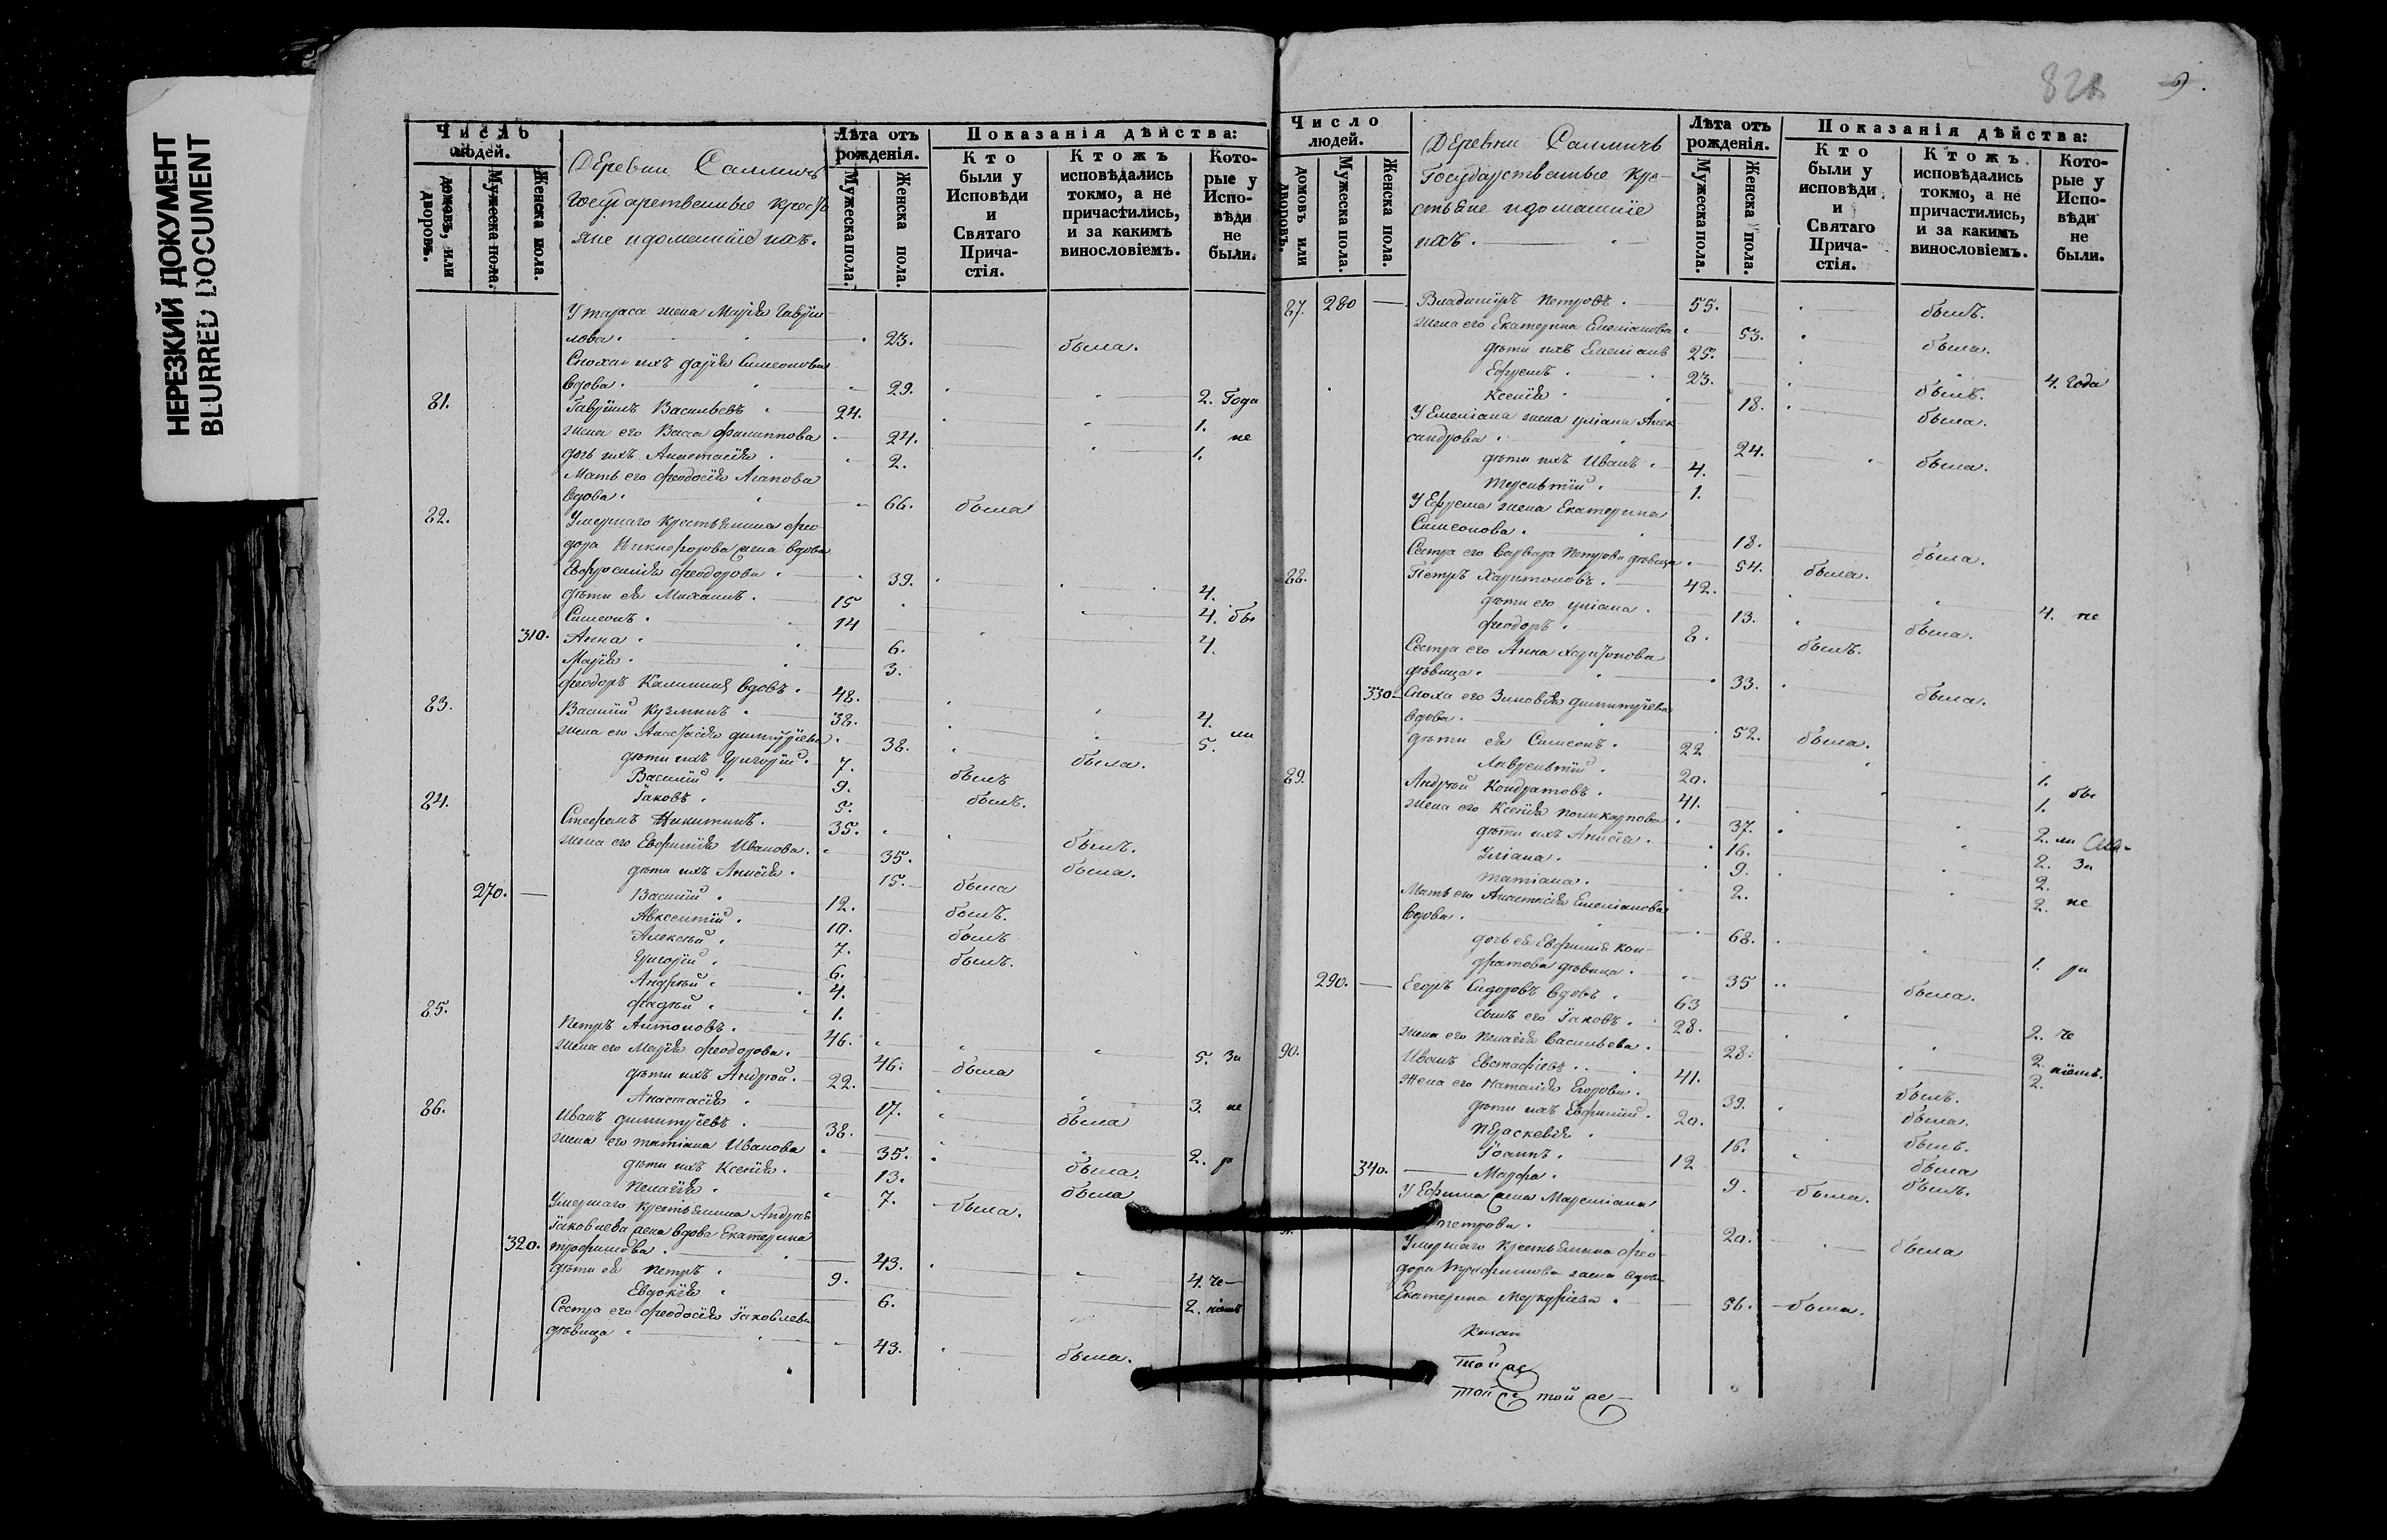 НЕРЕЗКИЙ ДОКУМЕНТ
BLURRED DOCUMENT
Число людей.
домовъ, или дворовъ.
Мужеска пола.
Женска пола.
Деревни
Государственные кресть
яне и домашніе ихъ.
Лѣта отъ рожденія.
Мужеска пола.
Женска пола.
Показанія дѣйства:
Кто были у Исповѣди и Святаго Прича-стія.
Ктожъ исповѣдались токмо, а не причастились, и за какимъ винословіемъ.
Кото-рые у Испо-вѣди не были.
У Тараса жена Марія Гаври
лова. 23. была.
Сноха ихъ Дарія Симеонова
вдова. 29. 2. Года
81. Гавріилъ Васильевъ 24. 1.
жена его Васса Филиппова 24. 1. не
дочь ихъ Анастасія. 2.
Мать его Феодосія Агапова
вдова. 66. была
82. Умершаго крестьянина Фео
дора Никифорова жена вдова
Евфросинія Феодорова 39. 4.
дѣти ея Михаилъ. 15 4. бы
Симеонъ. 14 4.
310. Анна. 6.
Марія. 3.
Феодоръ вдовъ. 48. 4.
83. Василій Кузминъ. 38. 5. ли
жена его Анастасія Димитріева 38. была.
дѣти ихъ Григорій. 7. былъ
Василій 9. былъ.
Іаковъ. 5.
84. Стефанъ Никитинъ. 35. былъ.
жена его Евфимія Иванова. 35. была.
дѣти ихъ Анисія. 15. была
270. Василій. 12. былъ.
Авксентій. 10. былъ
Алексѣй. 7. былъ.
Григорій. 6.
Андрей. 4.
Фадѣй. 1.
85. Петръ Антоновъ. 46. 5. За
жена его Марія Феодорова. 46. была
дѣти ихъ Андрей. 22. 3. не
Анастасія 17. была
86. Иванъ Димитріевъ. 38. 2. ра
жена его Татіана Иванова 35. была.
дѣти ихъ Ксенія. 13. была
Пелагія. 7. была.
Умершаго крестьянина Андрея
Іаковлева жена вдова Екатерина
320. Трофимова. 43. 4. че
дѣти ея Петръ. 9. 2. ніемъ
Евдокія 6.
Сестра его Феодосія Іаковлева
дѣвица 43. была.
82
9.
Число людей.
домовъ или дворовъ.
Мужеска пола.
Женска пола.
Деревни
Государственные кре-
стьяне и домашніе
ихъ.
Лѣта отъ рожденія.
Мужеска пола.
Женска пола.
Показанія дѣйства:
Кто были у исповѣди и Святаго Прича-стія.
Ктожъ исповѣдались токмо, а не причастились, и за какимъ винословіемъ.
Кото-рые у Испо-вѣди не были.
87. 280 Владиміръ Петровъ. 55. былъ.
жена его Екатерина Емеліанова 53. была.
дѣти ихъ Емеліанъ 25. 4. Года
Ефремъ. 23. былъ.
Ксенія. 18. была.
У Емеліана жена Уліана Алек
сандрова. 24. была.
дѣти ихъ Иванъ. 4.
Терентій. 1.
У Ефрема жена Екатерина
Симеонова. 18. была.
Сестра его Варвара Петрова дѣвица 54. была.
88. Петръ Харитоновъ. 42. 4. не
дѣти его Уліана. 13. была.
Феодоръ. 8. былъ.
Сестра его Анна Харитонова
дѣвица. 33. была.
330. Сноха его Зиновія Димитріева
вдова. 52. была.
дѣти ея Симеонъ. 22 1. бы
Лаврентій. 20. 1.
89. Андрей Кондратовъ. 41. 2. ли
жена его Ксенія Поликарпова 37. 2. За
дѣти ихъ Анисія. 16. 2.
Уліана. 9. 2. не
Татіана. 2.
Мать его Анастасія Емеліанова
вдова. 68. 1. ра
дочь ея Евфимія Кон-
дратова дѣвица. 35 была.
290. Егоръ Сидоровъ вдовъ. 63 2. че
сынъ его Іаковъ. 28. 2. ніемъ.
жена его Пелагія Васильева. 28. 2.
90. Иванъ Евстафіевъ. 41. былъ.
жена его Наталія Егорова. 39. была.
дѣти ихъ Евфимій. 20. былъ.
Параскевія. 16. была
Іоаннъ. 12 былъ.
340. Марфа. 9. была.
У Ефима жена
Петрова. 20. была
Умершаго крестьянина Фео-
дора Трофимова жена вдова
Екатерина Меркуріева. 56. была.